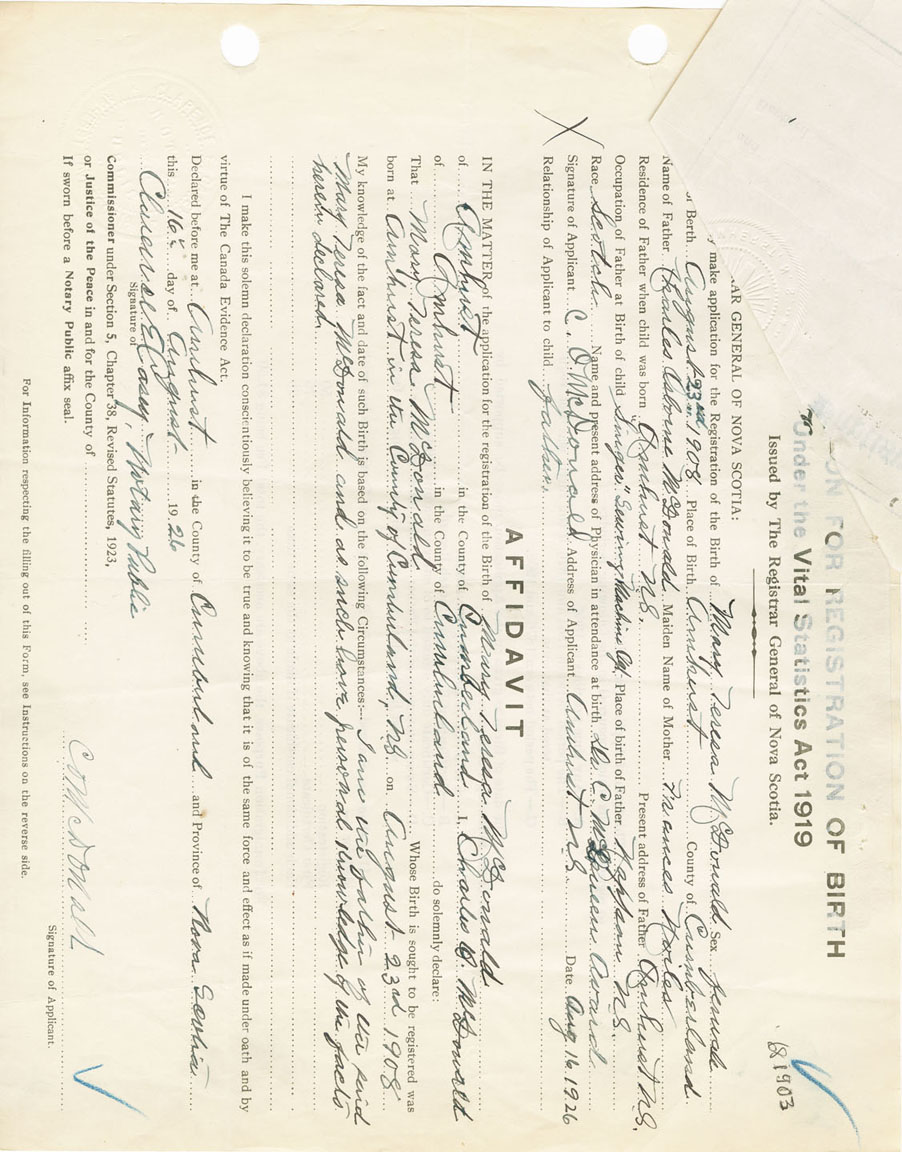 FOR REGISTRATION OF BIRTH
Under the Vital Statistics Act 1919
Issued by The Registrar General of Nova Scotia.
181903
AR GENERAL OF NOVA SCOTIA:
make application for the Registration of the Birth of Mary Teresa McDonald Sex female
Berth August 23rd 1908 Place of Birth Amherst County of Cumberland
Name of Father Charles Osborne McDonald Maiden Name of Mother Frances
Residence of Father when child was born Amherst N.S. Present address of Father Amherst N.S.
Occupation of Father at Birth of child "Singer" Sewing Machine Agt. Place of birth of Father Nappan N.S.
Race Scotch Name and present address of Physician in attendance at birth Dr. C. McQueen
Signature of Applicant C. O. McDonald Address of Applicant Amherst N.S. Date Aug 16 1926
X Relationship of Applicant to child father.
AFFIDAVIT
IN THE MATTER of the application for the registration of the Birth of Mary Teresa McDonald
of Amherst in the County of Cumberland I, Charles O. McDonald
of Amherst in the County of Cumberland do solemnly declare:
That Mary Teresa McDonald Whose Birth is sought to be registered was
born at Amherst in the County of Cumberland, N.S. on August 23rd 1908
My knowledge of the fact and date of such Birth is based on the following Circumstances:— I am the father of the said
Mary Teresa McDonald and as such have personal knowledge of the facts
herein declared.
I make this solemn declaration conscientiously believing it to be true and knowing that it is of the same force and effect as if made under oath and by
virtue of The Canada Evidence Act.
Declared before me at Amherst in the County of Cumberland and Province of Nova Scotia
this 16th day of August 1926
Clarence E. Casey, Notary Public
Signature of
C O McDONALD
Signature of Applicant.
Commissioner under Section 5, Chapter 38, Revised Statutes, 1923,
or Justice of the Peace in and for the County of
If sworn before a Notary Public affix seal.
For Information respecting the filling out of this Form, see Instructions on the reverse side.